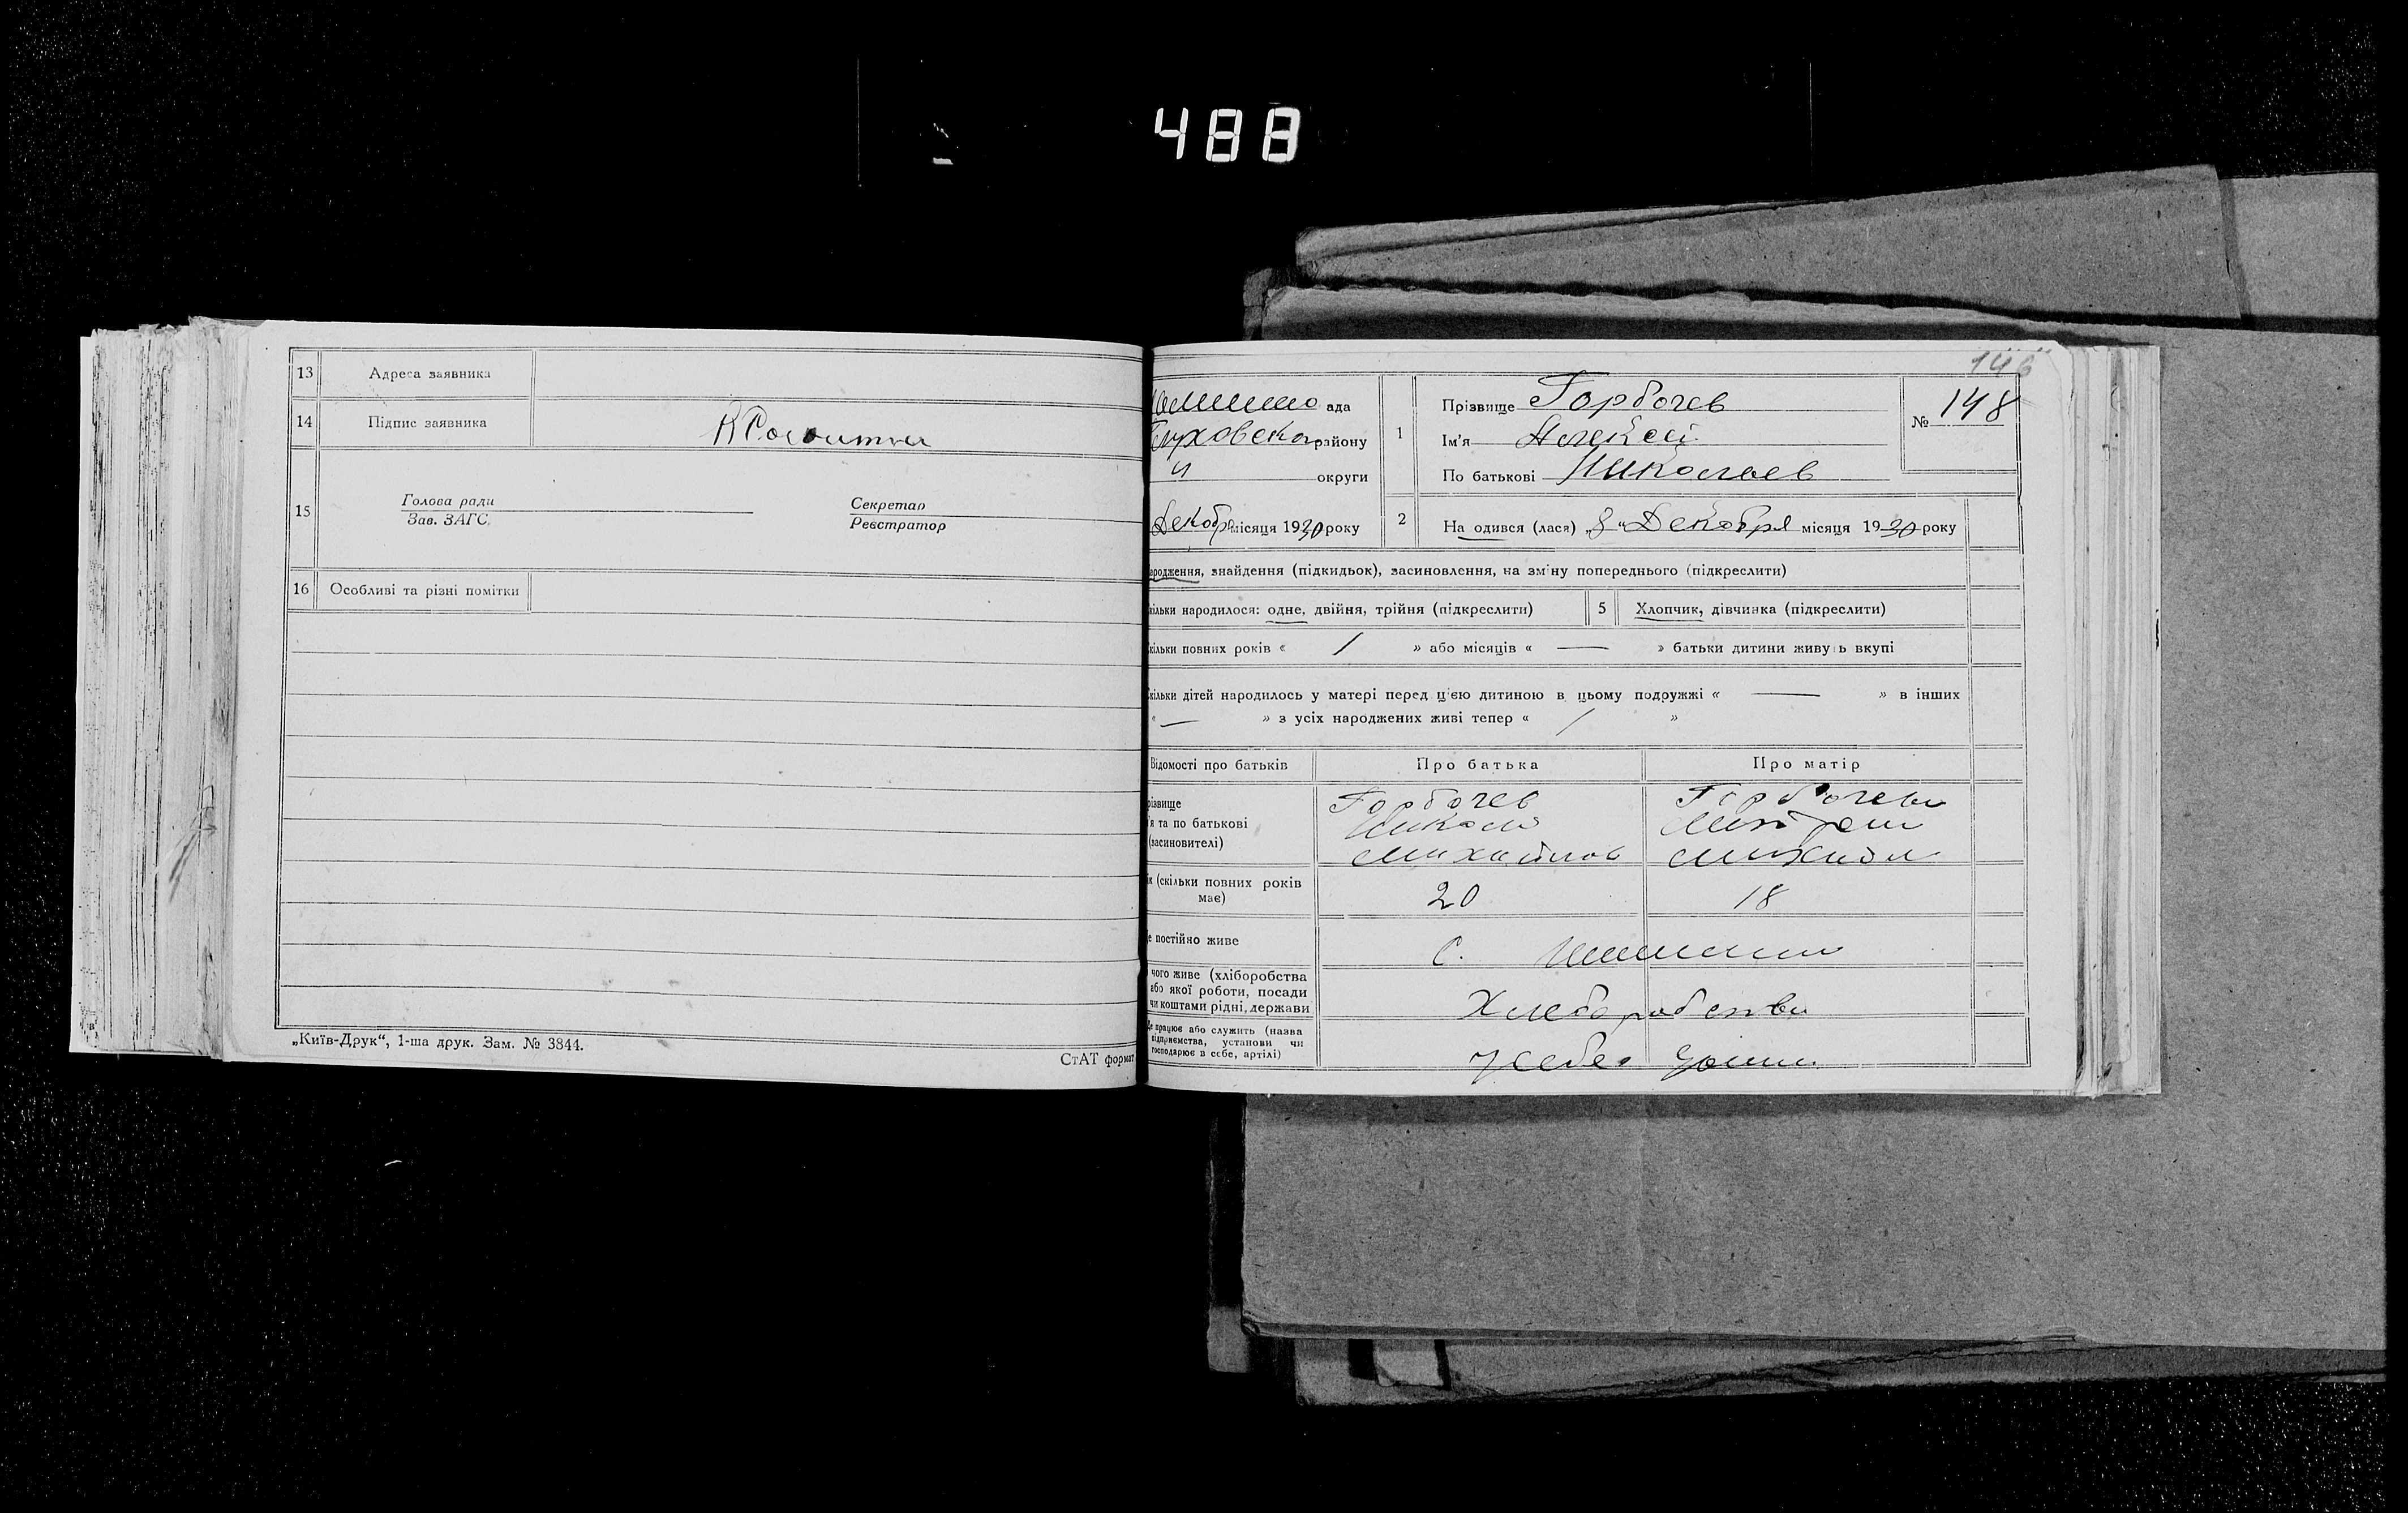 488
13 Адреса заявника
14 Підпис заявника
15 Голова ради Секретар
Зав. ЗАГС. Реєстратор
16 Особливі та різні помітки
„Київ-Друк“, 1-ша друк. Зам. № 3844.
СтАТ формат
146
ада
району
округи
1 Прізвище Горбочев
Ім'я Алексей
По батькові Николаев
№ 148
Декобр місяця 1930 року
2 На одився (лася) „8“ Декобря місяця 1930 року
ародження, знайдення (підкидьок), засиновлення, на зміну попереднього (підкреслити)
кільки народилося: одне, двійня, трійня (підкреслити) 5 Хлопчик, дівчинка (підкреслити)
кільки повних років « / » або місяців « — » батьки дитини живуть вкупі
кільки дітей народилось у матері перед цією дитиною в цьому подружжі « — » в інших
« — » з усіх народжених живі тепер « / »
Відомості про батьків Про батька Про матір
різвище Горбочев Горбочева
'я та по батькові Никола
(засиновителі) Михайлов
ік (скільки повних років
має) 20 18
е постійно живе С.
чого живе (хліборобства
або якої роботи, посади
чи коштами рідні, держави Хлеборобства
е працює або служить (назва
підприємства, установи чи
господарює в себе, артілі) У себе дома